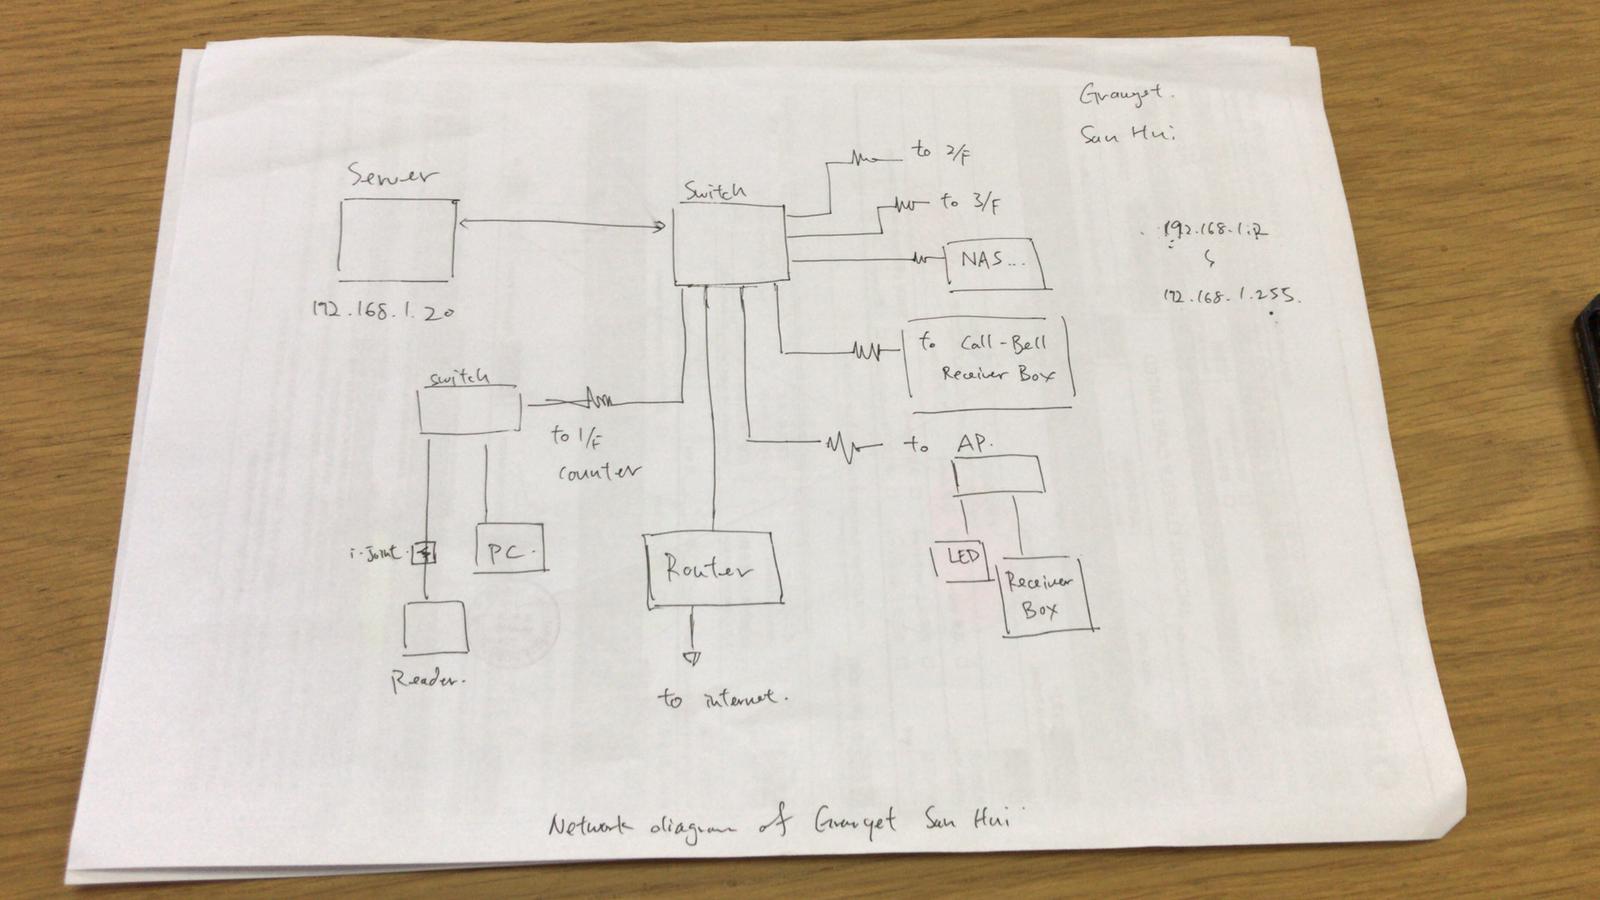 San Hui
Server
192.168.1.20
Switch
to 2/F
to 3/F
NAS...
192.168.1.2
192.168.1.255.
to Call-Bell
Receiver Box
switch
to 1/F
counter
to AP.
LED
Receiver
Box
i-Joint.
PC.
Router
Reader.
to internet.
Network diagram of San Hui